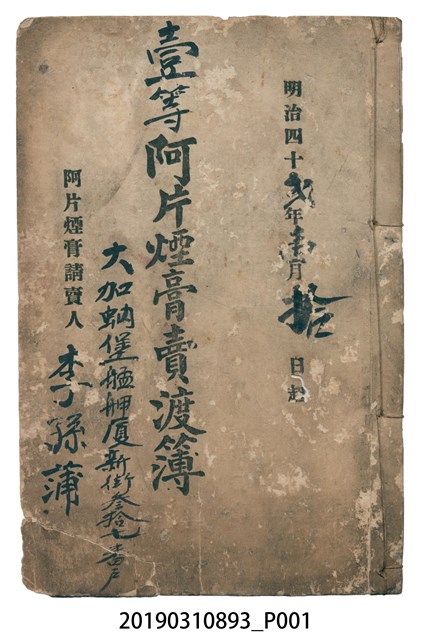 明治四十貳年壹月拾日起
壹等阿片煙膏賣渡簿
大加蚋堡艋舺厦新街叁拾七番戶
阿片煙膏請賣人 李孫蒲
20190310893_P001